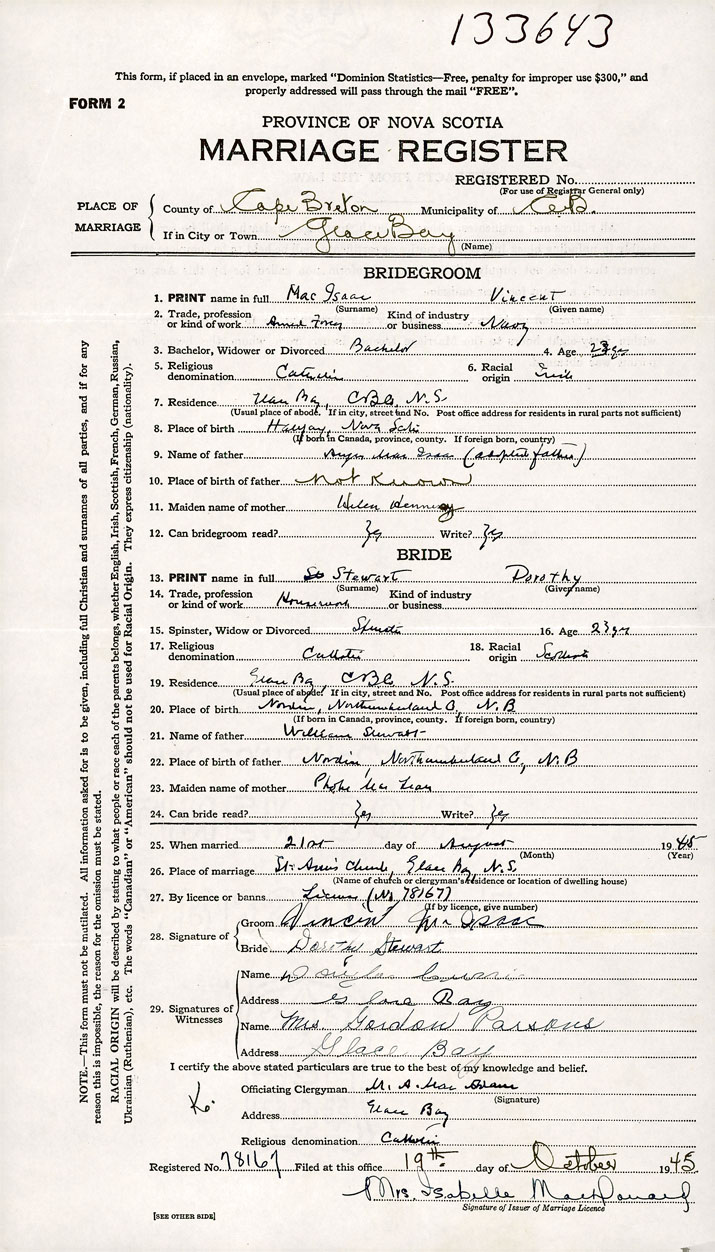 133643
This form, if placed in an envelope, marked "Dominion Statistics—Free, penalty for improper use $300," and
properly addressed will pass through the mail "FREE".
FORM 2
PROVINCE OF NOVA SCOTIA
MARRIAGE REGISTER
REGISTERED No.
(For use of Registrar General only)
PLACE OF MARRIAGE
County of Cape Breton Municipality of C.B.
If in City or Town Glace Bay
(Name)
BRIDEGROOM
1. PRINT name in full Mac Isaac Vincent
(Surname) (Given name)
2. Trade, profession or kind of work Armed Forces Kind of industry or business Navy
3. Bachelor, Widower or Divorced Bachelor 4. Age 23 yrs
5. Religious denomination Catholic 6. Racial origin Irish
7. Residence Glace Bay, C B Co, N.S.
(Usual place of abode. If in city, street and No. Post office address for residents in rural parts not sufficient)
8. Place of birth Halifax, Nova Scotia
(If born in Canada, province, county. If foreign born, country)
9. Name of father Angus Mac Isaac (adopted father)
10. Place of birth of father not known
11. Maiden name of mother Helen Hennesy
12. Can bridegroom read? Yes Write? Yes
BRIDE
13. PRINT name in full St Stewart Dorothy
(Surname) (Given name)
14. Trade, profession or kind of work Housework Kind of industry or business
15. Spinster, Widow or Divorced Spinster 16. Age 23 yrs
17. Religious denomination Catholic 18. Racial origin Scottish
19. Residence Glace Bay, C B Co N.S.
(Usual place of abode. If in city, street and No. Post office address for residents in rural parts not sufficient)
20. Place of birth Nordin, Northumberland Co, N.B
(If born in Canada, province, county. If foreign born, country)
21. Name of father William Stewart
22. Place of birth of father Nordin, Northumberland Co, N.B
23. Maiden name of mother Phobe Mac Lean
24. Can bride read? Yes Write? Yes
25. When married 21st day of August 1945
(Month) (Year)
26. Place of marriage St. Ann's Church, Glace Bay, N.S.
(Name of church or clergyman's residence or location of dwelling house)
27. By licence or banns License (No 78167)
(If by licence, give number)
28. Signature of
Groom Vincent Mc Isaac
Bride Dorothy Stewart
29. Signatures of Witnesses
Name Douglas
Address Glace Bay
Name Mrs Gordon Parsons
Address Glace Bay
I certify the above stated particulars are true to the best of my knowledge and belief.
Officiating Clergyman M. A. Mac Adam
(Signature)
Address Glace Bay
Religious denomination Catholic
Registered No. 78167 Filed at this office 19th day of October 1945
Mrs. Isabelle MacDonald
Signature of Issuer of Marriage Licence
[SEE OTHER SIDE]
NOTE.—This form must not be mutilated. All information asked for is to be given, including full Christian and surnames of all parties, and if for any
reason this is impossible, the reason for the omission must be stated.
RACIAL ORIGIN will be described by stating to what people or race each of the parents belongs, whether English, Irish, Scottish, French, German, Russian,
Ukrainian (Ruthenian), etc. The words "Canadian" or "American" should not be used for Racial Origin. They express citizenship (nationality).